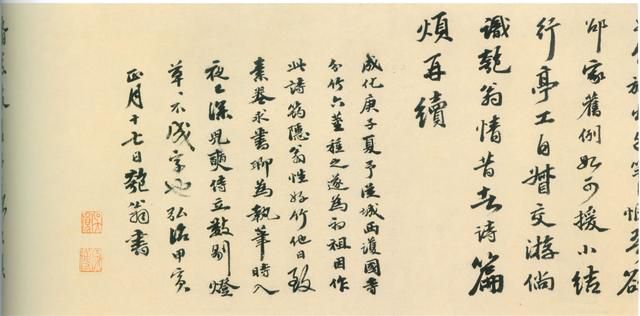 邵家舊例如可援小結
行亭工自贊交游倘
識匏翁情昔詩篇
煩再續
成化庚子夏予從城西護國寺
分竹六莖種之遂為初祖因作
此詩筠隱翁性好竹他日致
素卷求書聊為執筆時入
夜已深兒奭侍立數剔燈
草草不成字也弘治甲寅
正月十七日匏翁書